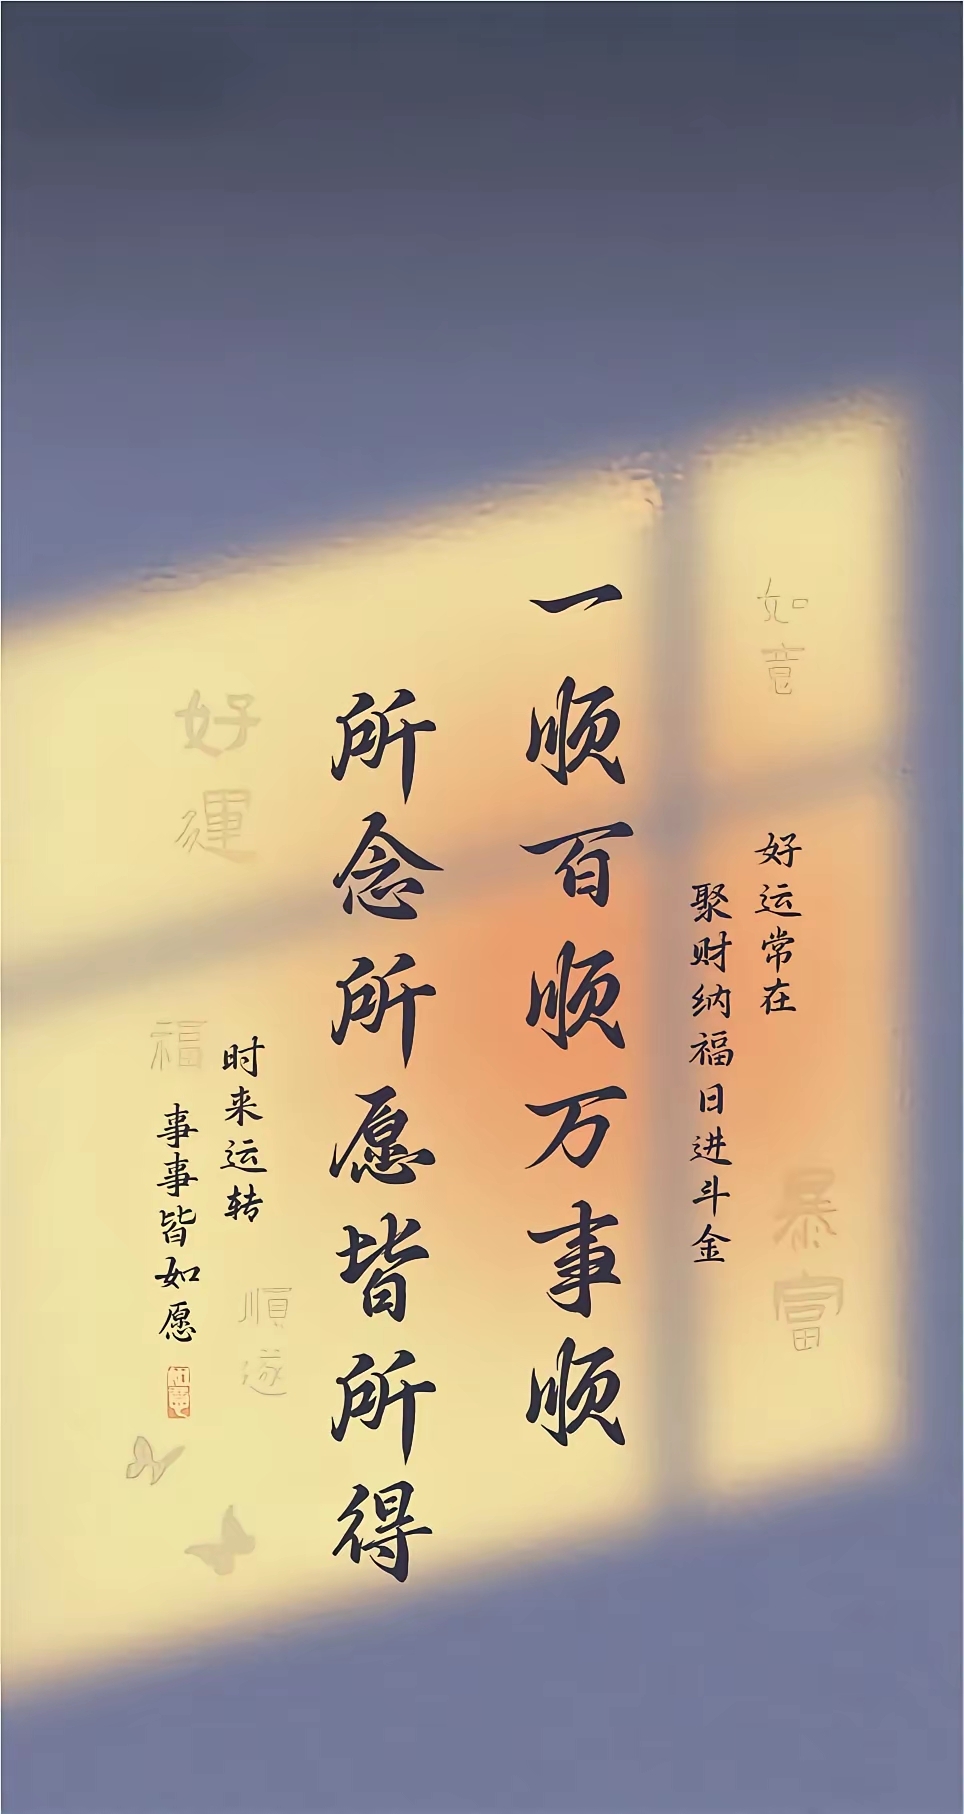 如意
好运常在
聚财纳福日进斗金
暴富
一顺百顺万事顺
所念所愿皆所得
好運
福
时来运转
事事皆如愿
順遂